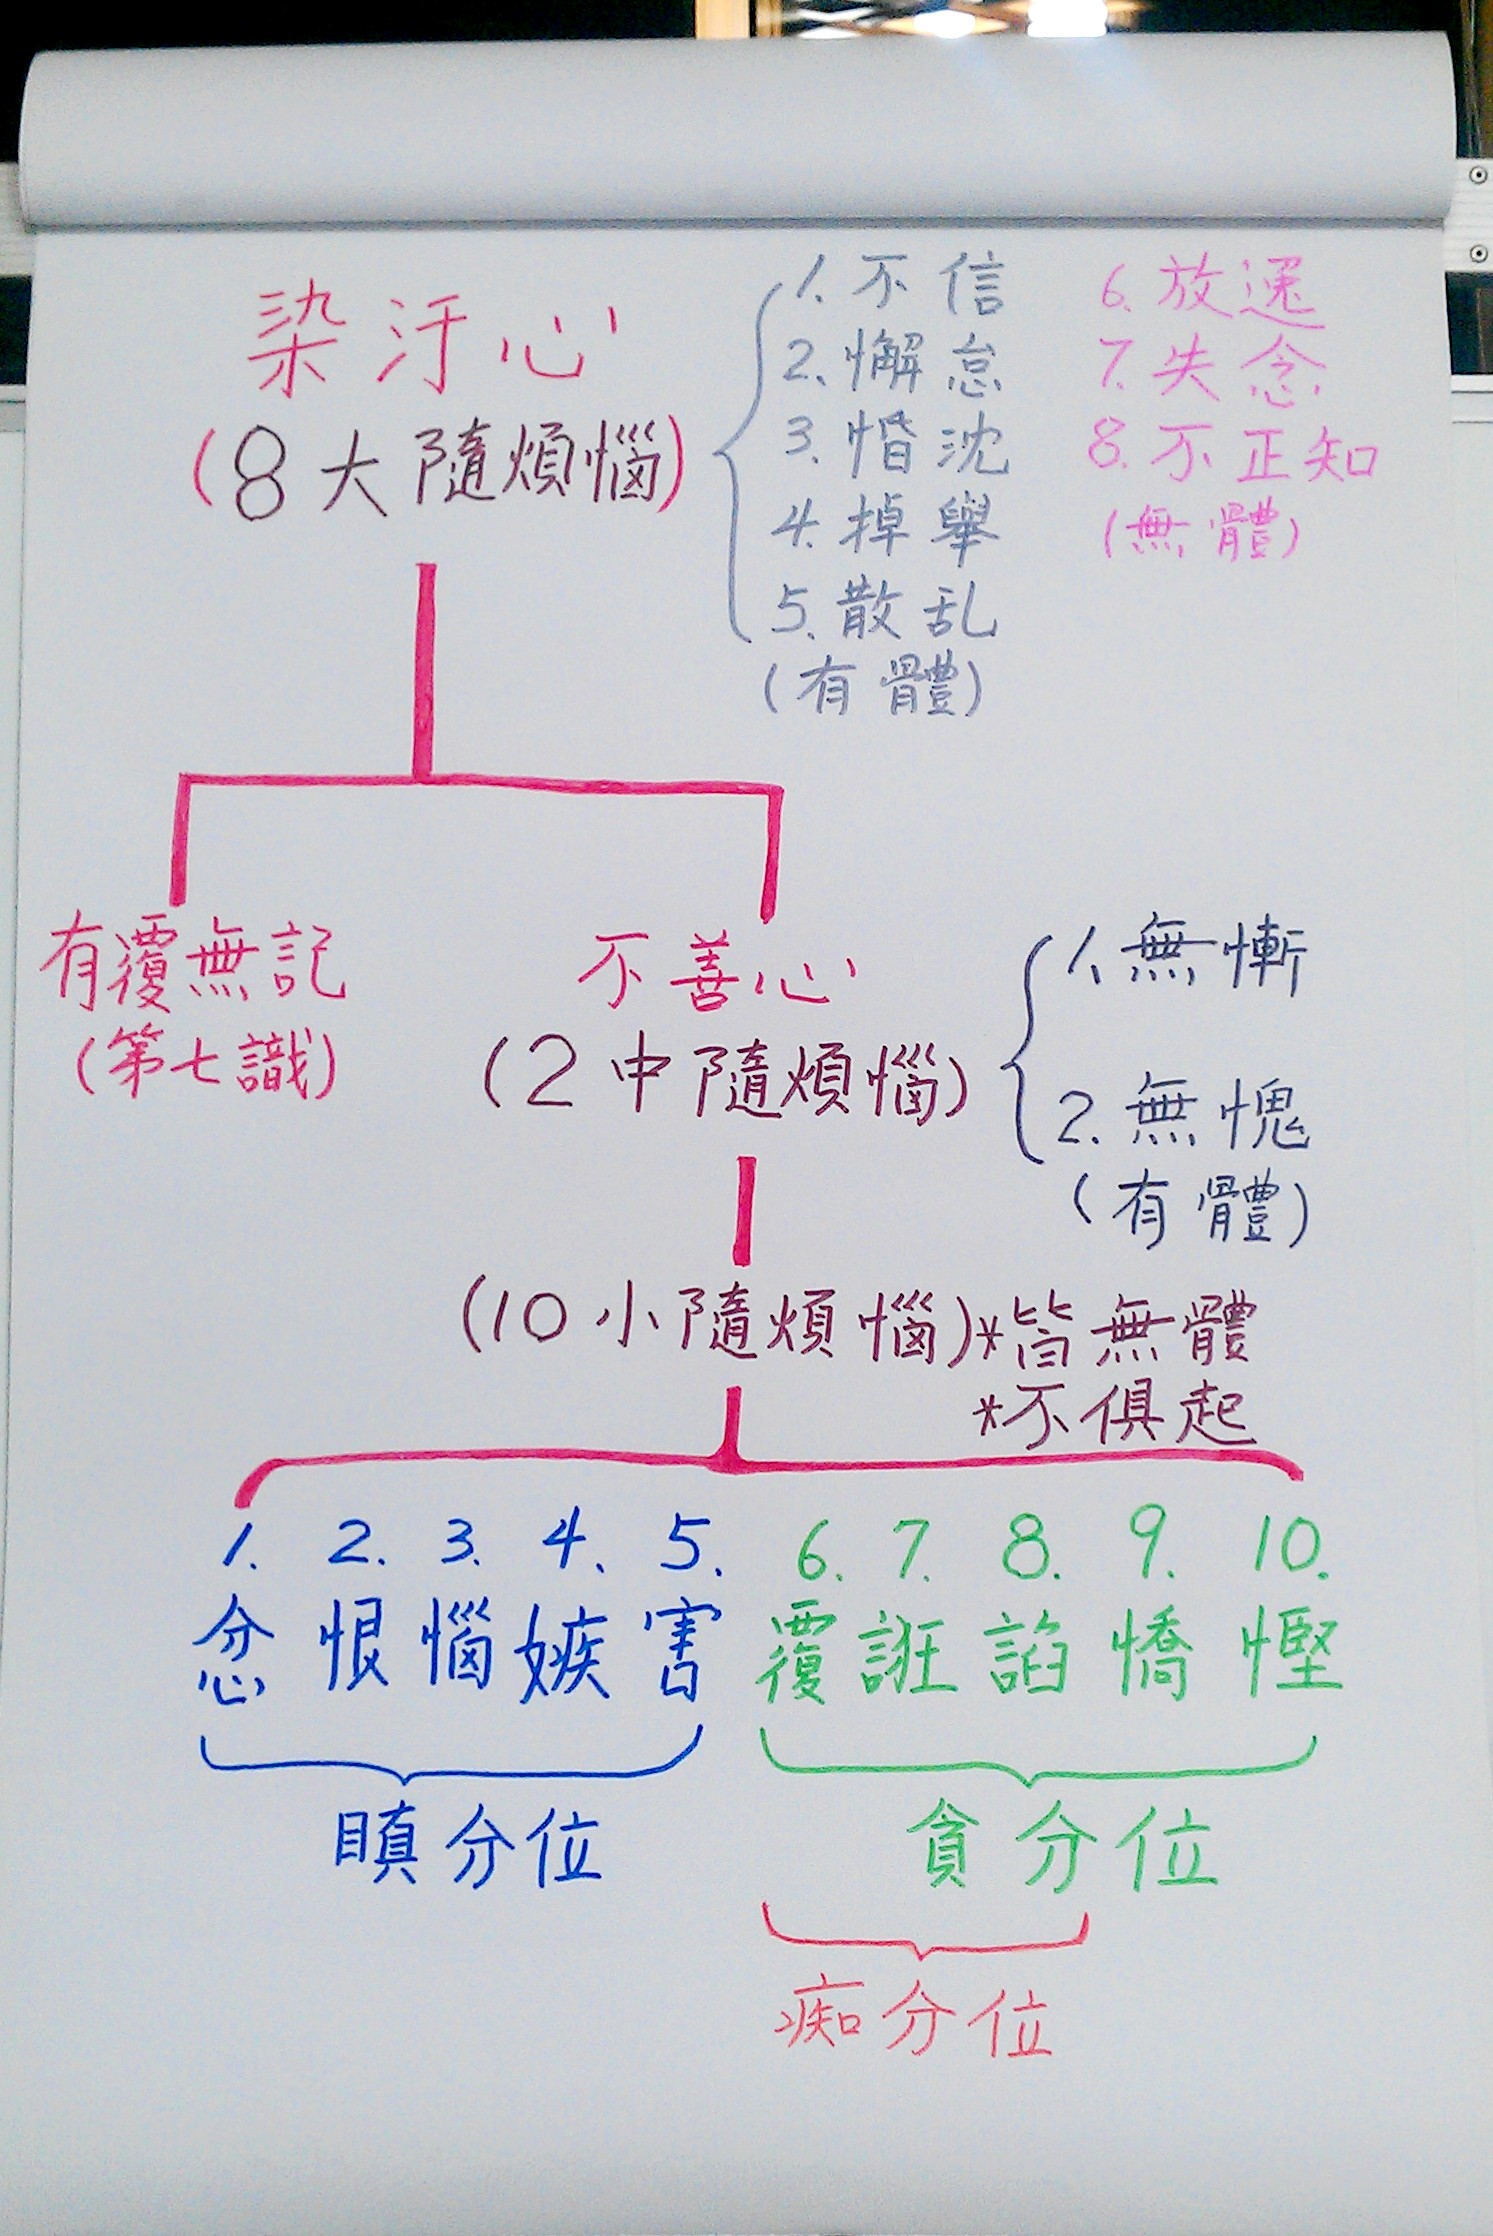 染汙心
(8大隨煩惱)
1. 不信
2. 懈怠
3. 惛沈
4. 掉舉
5. 散乱
(有體)
6. 放逸
7. 失念
8. 不正知
(無體)
有覆無記
(第七識)
不善心
(2中隨煩惱)
1. 無慚
2. 無愧
(有體)
(10小隨煩惱)*皆無體
*不俱起
1. 2. 3. 4. 5. 6. 7. 8. 9. 10.
忿 恨 惱 嫉 害 覆 誑 諂 憍 慳
瞋分位 貪分位
痴分位